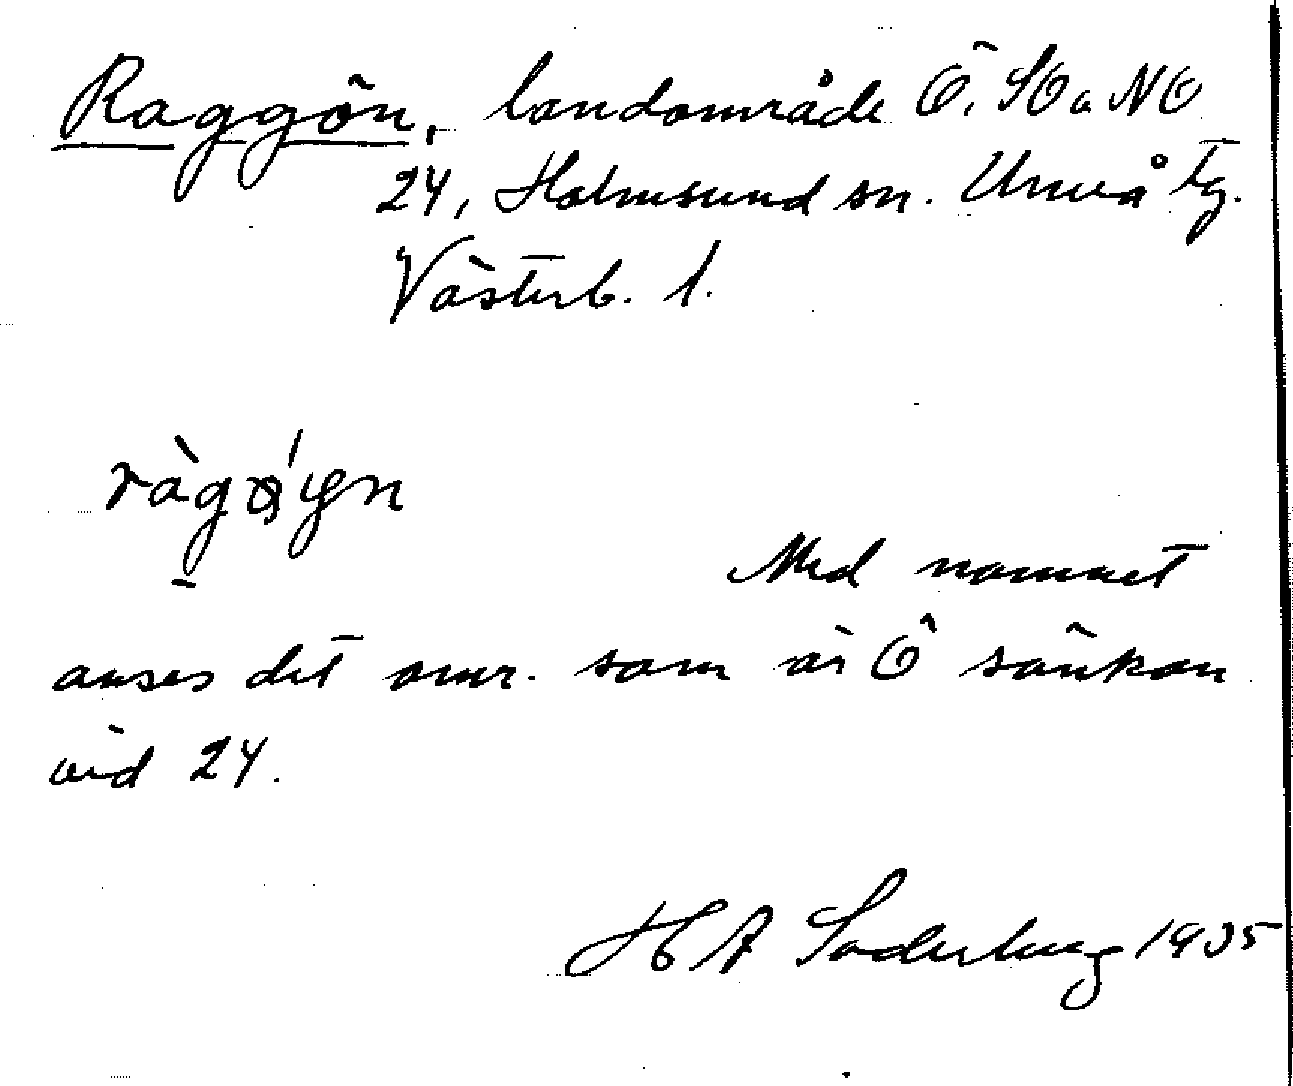 Raggön, landområde Ö, SO o NO
24, Holmsund sn. Umeå tg.
Västerb. l.
Med namnet
anses det omr. som är Ö sänkan
vid 24.
H A Söderberg 1935